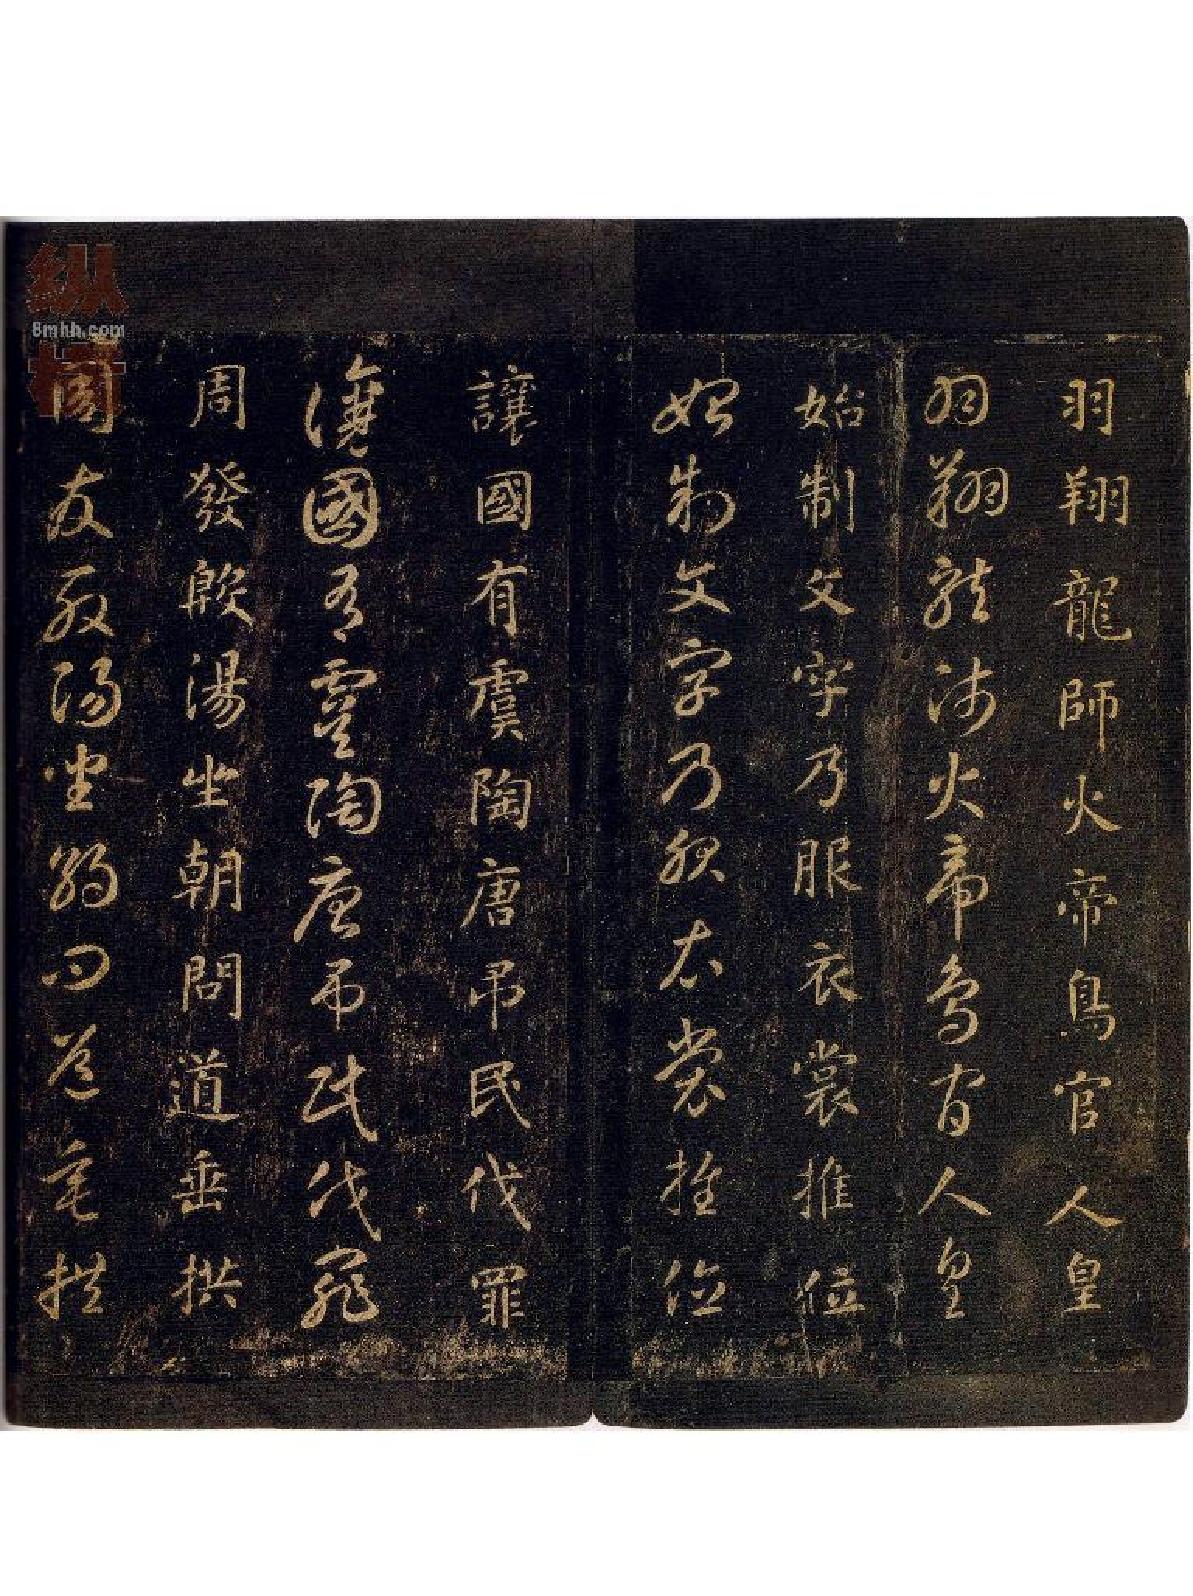 羽翔龍師火帝鳥官人皇
羽翔龍師火帝鳥官人皇
始制文字乃服衣裳推位
始制文字乃服衣裳推位
讓國有虞陶唐弔民伐罪
讓國有虞陶唐弔民伐罪
周發殷湯坐朝問道垂拱
周發殷湯坐朝問道垂拱
纵
8mhh.com